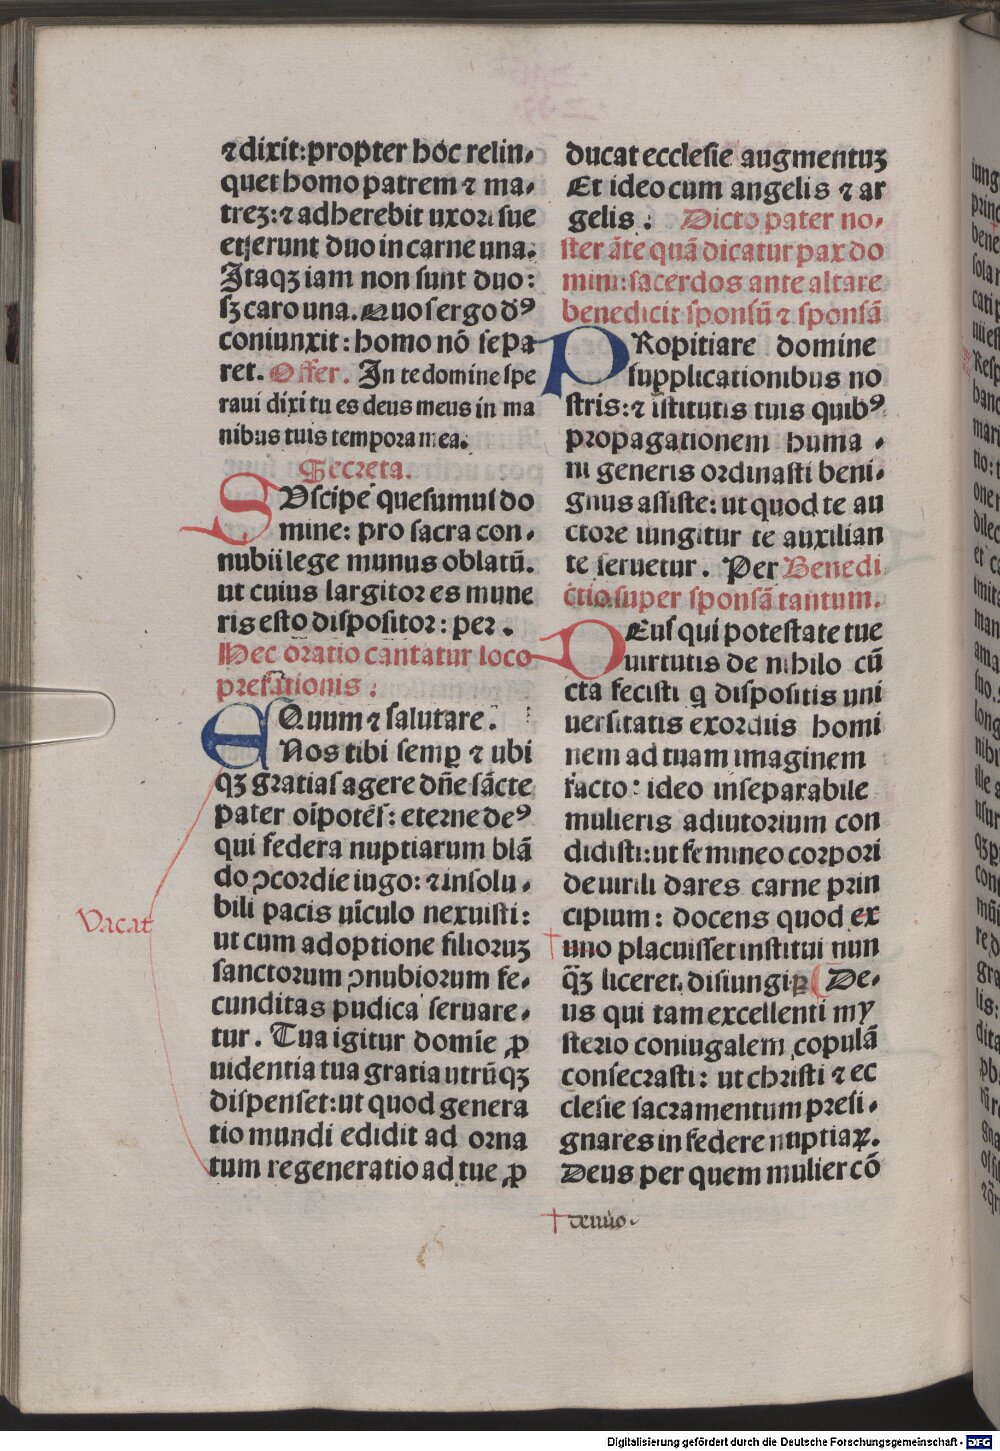 ⁊ dixit: propter hoc relin-
quet homo patrem ⁊ ma-
treꝫ: ⁊ adherebit uxori sue
et erunt duo in carne una.
Itaqꝫ iam non sunt duo:
sꝫ caro una. Quos ergo dꝰ
coniunxit: homo nō sepa
ret. Offer. In te domine spe
raui dixi tu es deus meus in ma
nibus tuis tempora mea.
Secreta.
SUscipe quesumus do
mine: pro sacra con-
nubii lege munus oblatū.
ut cuius largitor es mune
ris esto dispositor: per.
Hec oratio cantatur loco
prefationis:
EQuum ⁊ salutare.
Nos tibi semꝑ ⁊ ubi
qꝫ gratias agere dñe sācte
pater oīpotēs: eterne deꝰ
qui federa nuptiarum blā
do ꝯcordie iugo: ⁊ insolu-
bili pacis uīculo nexuisti:
ut cum adoptione filioruꝫ
sanctorum ꝯnubiorum fe-
cunditas pudica seruare-
tur. Tua igitur domīe ꝓ
uidentia tua gratia utrūqꝫ
dispenset: ut quod genera
tio mundi edidit ad orna
tum regeneratio ad tue ꝓ
Vacat
ducat ecclesie augmentuꝫ
Et ideo cum angelis ⁊ ar
gelis: Dicto pater no-
ster āte quā dicatur pax do
mini: sacerdos ante altare
benedicit sponsū ⁊ sponsā
PRopitiare domine
supplicationibus no
stris: ⁊ īstitutis tuis quibꝰ
propagationem huma-
ni generis ordinasti beni-
gnus assiste: ut quod te au
ctore iungitur te auxilian
te seruetur. Per Benedi
ctio super sponsā tantum.
DEus qui potestate tue
uirtutis de nihilo cū
cta fecisti q dispositis uni
uersitatis exordiis homi
nem ad tuam imaginem
facto: ideo inseparabile
mulieris adiutorium con
didisti: ut femineo corpori
de uirili dares carne prin
cipium: docens quod ex
†uno placuisset institui nun
q̄ꝫ liceret disiungiꝑ De-
us qui tam excellenti my
sterio coniugalem copulā
consecrasti: ut christi ⁊ ec
clesie sacramentum presi-
gnares in federe nuptiaꝝ.
Deus per quem mulier cō
† denuo.
Digitalisierung gefördert durch die Deutsche Forschungsgemeinschaft - DFG